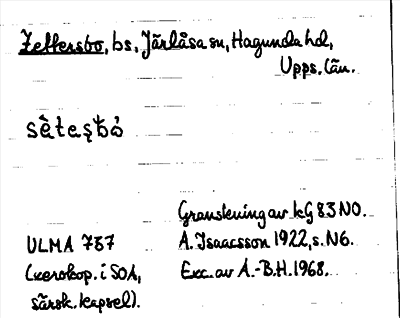 Zettersbo, bs, Järlåsa sn, Hagunda hd,
Upps. län.
sètaṣbò
Granskning av kG 83 NO.
ULMA 787 A. Isaacsson 1922, s. N6.
(xerokop. i SOA, Exc. av A.-B.H. 1968.
särsk. kapsel).